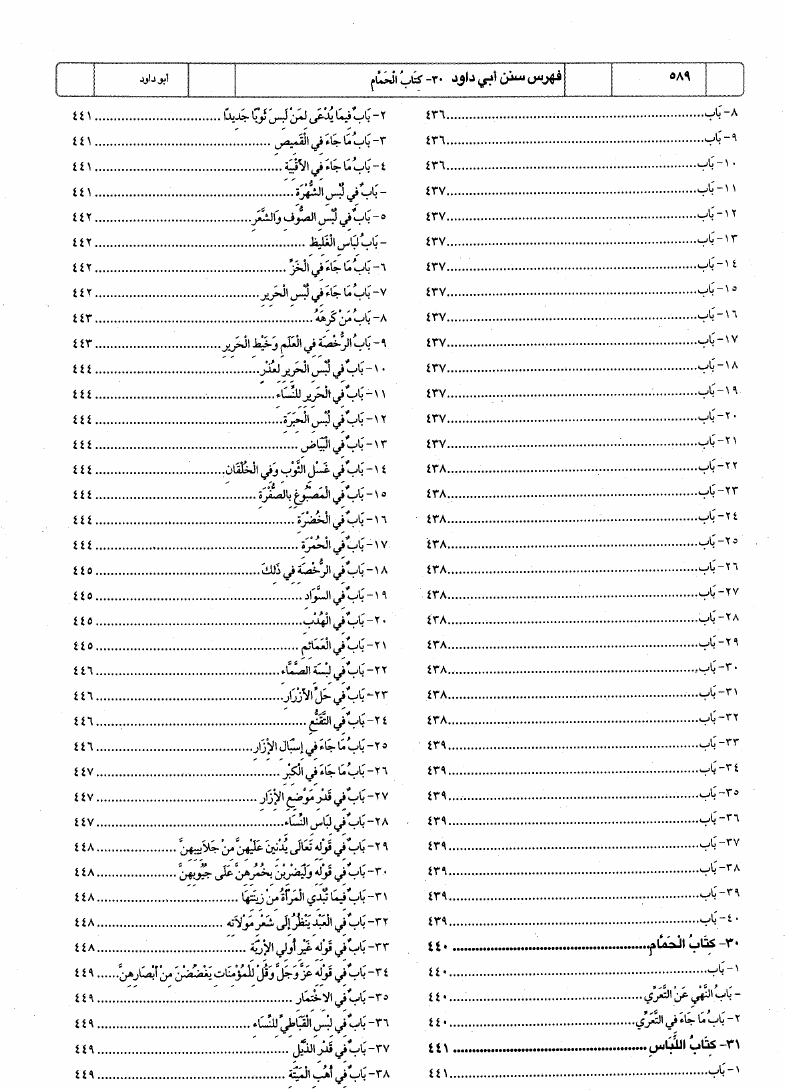 ٥٨٩ فهرس سنن أبي داود ٣٠- كِتَابُ الْحَمَّام أبو داود
٨- بَاب ٤٣٦
٩- بَاب ٤٣٦
١٠- بَاب ٤٣٦
١١- بَاب ٤٣٧
١٢- بَاب ٤٣٧
١٣- بَاب ٤٣٧
١٤- بَاب ٤٣٧
١٥- بَاب ٤٣٧
١٦- بَاب ٤٣٧
١٧- بَاب ٤٣٧
١٨- بَاب ٤٣٧
١٩- بَاب ٤٣٧
٢٠- بَاب ٤٣٧
٢١- بَاب ٤٣٧
٢٢- بَاب ٤٣٨
٢٣- بَاب ٤٣٨
٢٤- بَاب ٤٣٨
٢٥- بَاب ٤٣٨
٢٦- بَاب ٤٣٨
٢٧- بَاب ٤٣٨
٢٨- بَاب ٤٣٨
٢٩- بَاب ٤٣٨
٣٠- بَاب ٤٣٨
٣١- بَاب ٤٣٨
٣٢- بَاب ٤٣٨
٣٣- بَاب ٤٣٩
٣٤- بَاب ٤٣٩
٣٥- بَاب ٤٣٩
٣٦- بَاب ٤٣٩
٣٧- بَاب ٤٣٩
٣٨- بَاب ٤٣٩
٣٩- بَاب ٤٣٩
٤٠- بَاب ٤٣٩
٣٠- كِتَابُ الْحَمَّام ٤٤٠
١- بَاب ٤٤٠
- بَابُ النَّهْيِ عَنْ التَّعَرِّي ٤٤٠
٢- بَابُ مَا جَاءَ فِي التَّعَرِّي ٤٤٠
٣١- كِتَابُ اللِّبَاس ٤٤١
١- بَاب ٤٤١
٢- بَابٌ فِيمَا يُدْعَى لِمَنْ لَبِسَ ثَوْبًا جَدِيدًا ٤٤١
٣- بَابُ مَا جَاءَ فِي الْقَمِيصِ ٤٤١
٤- بَابُ مَا جَاءَ فِي الأَقْبِيَةِ ٤٤١
- بَابٌ فِي لُبْسِ الشُّهْرَةِ ٤٤١
٥- بَابٌ فِي لُبْسِ الصُّوفِ وَالشَّعَرِ ٤٤٢
- بَابُ لِبَاسِ الْغَلِيظِ ٤٤٢
٦- بَابُ مَا جَاءَ فِي الْخَزِّ ٤٤٢
٧- بَابُ مَا جَاءَ فِي لُبْسِ الْحَرِيرِ ٤٤٢
٨- بَابُ مَنْ كَرِهَهُ ٤٤٣
٩- بَابُ الرُّخْصَةِ فِي الْعَلَمِ وَخَيْطِ الْحَرِيرِ ٤٤٣
١٠- بَابٌ فِي لُبْسِ الْحَرِيرِ لِعُذْرٍ ٤٤٤
١١- بَابٌ فِي الْحَرِيرِ لِلنِّسَاءِ ٤٤٤
١٢- بَابٌ فِي لُبْسِ الْحِبَرَةِ ٤٤٤
١٣- بَابٌ فِي الْبَيَاضِ ٤٤٤
١٤- بَابٌ فِي غَسْلِ الثَّوْبِ وَفِي الْخُلْقَانِ ٤٤٤
١٥- بَابٌ فِي الْمَصْبُوغِ بِالصُّفْرَةِ ٤٤٤
١٦- بَابٌ فِي الْخُضْرَةِ ٤٤٤
١٧- بَابٌ فِي الْحُمْرَةِ ٤٤٤
١٨- بَابٌ فِي الرُّخْصَةِ فِي ذَلِكَ ٤٤٥
١٩- بَابٌ فِي السَّوَادِ ٤٤٥
٢٠- بَابٌ فِي الْهُدْبِ ٤٤٥
٢١- بَابٌ فِي الْعَمَائِمِ ٤٤٥
٢٢- بَابٌ فِي لِبْسَةِ الصَّمَّاءِ ٤٤٦
٢٣- بَابٌ فِي حَلِّ الأَزْرَارِ ٤٤٦
٢٤- بَابٌ فِي التَّقَنُّعِ ٤٤٦
٢٥- بَابُ مَا جَاءَ فِي إِسْبَالِ الإِزَارِ ٤٤٦
٢٦- بَابُ مَا جَاءَ فِي الْكِبْرِ ٤٤٧
٢٧- بَابٌ فِي قَدْرِ مَوْضِعِ الإِزَارِ ٤٤٧
٢٨- بَابٌ فِي لِبَاسِ النِّسَاءِ ٤٤٧
٢٩- بَابٌ فِي قَوْلِهِ تَعَالَى يُدْنِينَ عَلَيْهِنَّ مِنْ جَلاَبِيبِهِنَّ ٤٤٨
٣٠- بَابٌ فِي قَوْلِهِ وَلْيَضْرِبْنَ بِخُمُرِهِنَّ عَلَى جُيُوبِهِنَّ ٤٤٨
٣١- بَابٌ فِيمَا تُبْدِي الْمَرْأَةُ مِنْ زِينَتِهَا ٤٤٨
٣٢- بَابٌ فِي الْعَبْدِ يَنْظُرُ إِلَى شَعْرِ مَوْلاَتِهِ ٤٤٨
٣٣- بَابٌ فِي قَوْلِهِ غَيْرِ أُولِي الإِرْبَةِ ٤٤٨
٣٤- بَابٌ فِي قَوْلِهِ عَزَّ وَجَلَّ وَقُلْ لِلْمُؤْمِنَاتِ يَغْضُضْنَ مِنْ أَبْصَارِهِنَّ ٤٤٩
٣٥- بَابٌ فِي الاِخْتِمَارِ ٤٤٩
٣٦- بَابٌ فِي لِبْسِ الْقَبَاطِيِّ لِلنِّسَاءِ ٤٤٩
٣٧- بَابٌ فِي قَدْرِ الذَّيْلِ ٤٤٩
٣٨- بَابٌ فِي أُهُبِ الْمَيْتَةِ ٤٤٩